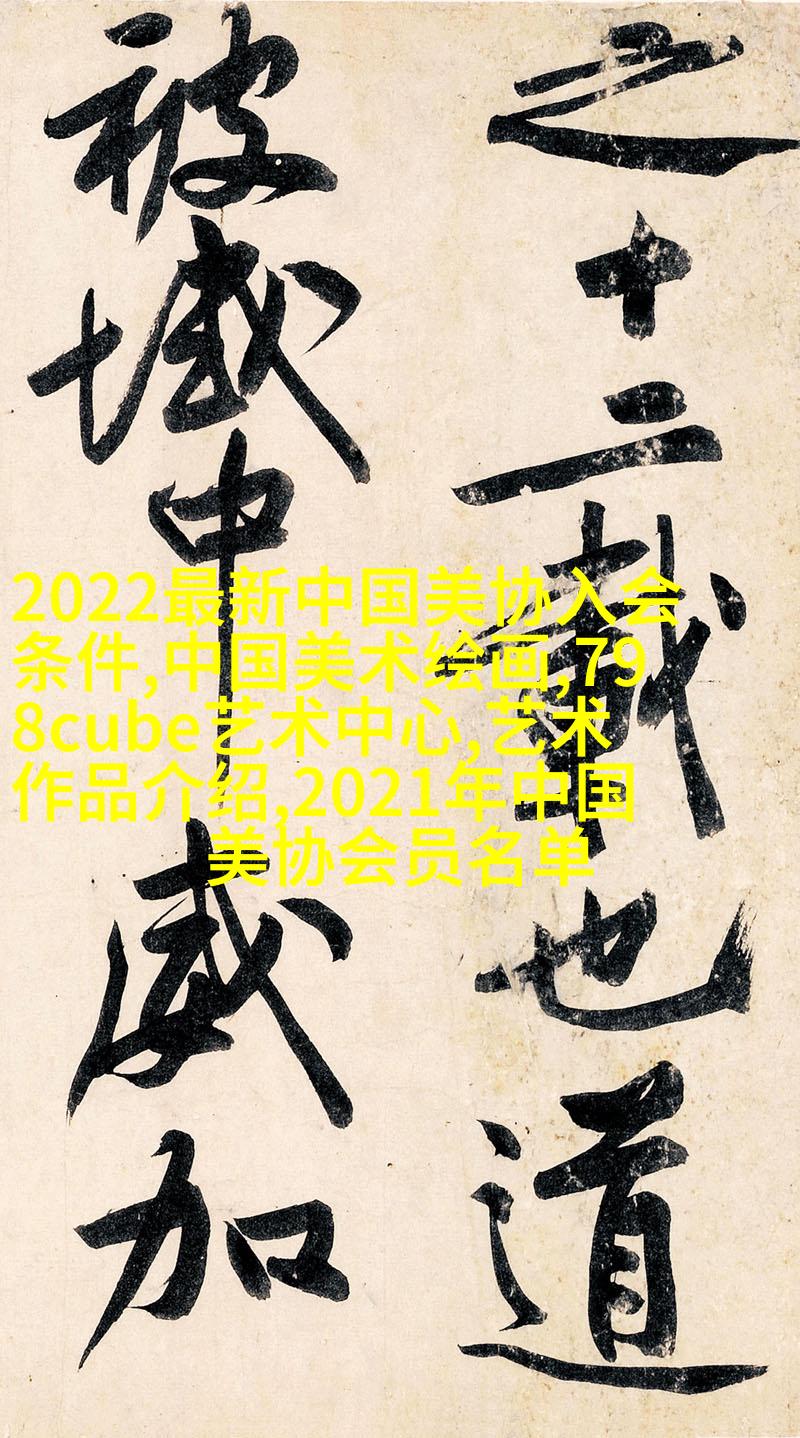 之十二載也道
被域中威加
2022最新中国美协入会
条件,中国美术绘画,79
8cube艺术中心,艺术
作品介绍,2021年中国
美协会员名单